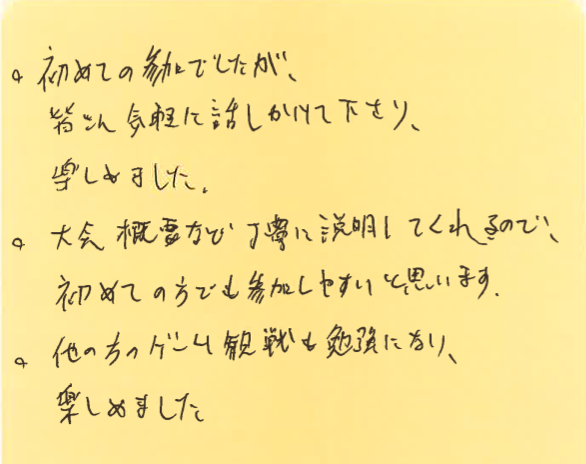 ○ 初めての参加でしたが、
皆さん気軽に話しかけて下さり、
楽しめました。
○ 大会概要など丁寧に説明してくれるので、
初めての方でも参加しやすいと思います。
○ 他の方のゲーム観戦も勉強になり、
楽しめました